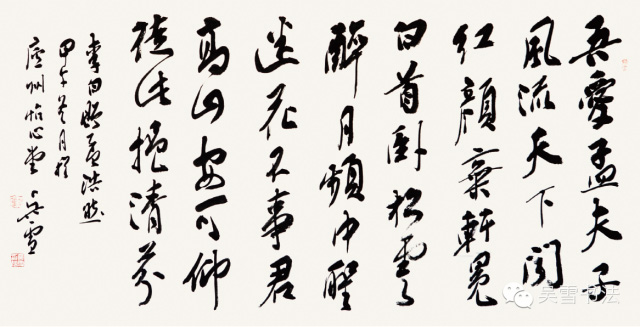 吾愛孟夫子
風流天下聞
紅顏棄軒冕
白首卧松雲
醉月頻中聖
迷花不事君
高山安可仰
徒此挹清芬
李白贈孟浩然
甲午月於
廬州怡心堂 吳雪
吴雪书法